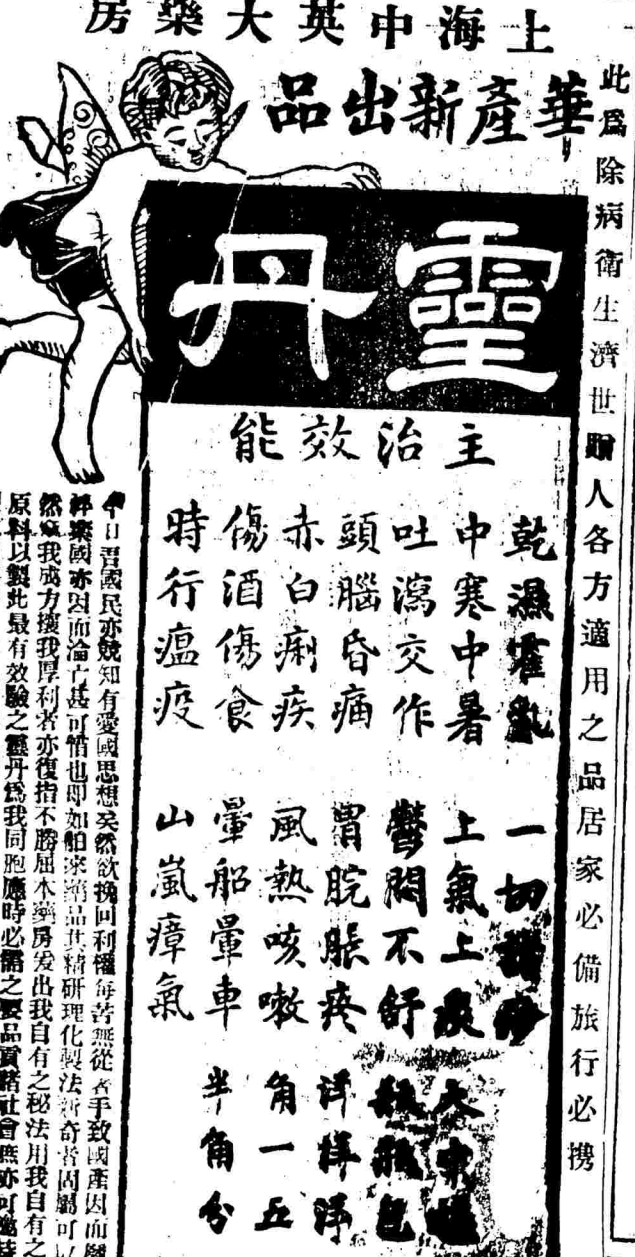 上海中英大藥房
華產新出品
此爲除病衛生濟世贈人各方適用之品居家必備旅行必携
靈丹
主治效能
乾濕霍亂
中寒中暑
吐瀉交作
頭腦昏痛
赤白痢疾
傷酒傷食
時行瘟疫
一切痧
上氣上
鬱悶不舒
胃脘脹疼
風熱咳嗽
暈船暈車
山嵐瘴氣
大中
瓶瓶包
洋洋洋
角一五
半角分
今日吾國民亦競知有愛國思想矣然欲挽回利權每苦無從著手致國產因而
國亦因而淪亡甚可惜也即如舶來藥品其精研理化製法新奇者固屬可
然 我成方攘我厚利者亦復指不勝屈本藥房爰出我自有之秘法用我自有之
原料以製此最有效驗之靈丹爲我同胞應時必需之要品貢諸社會無亦可